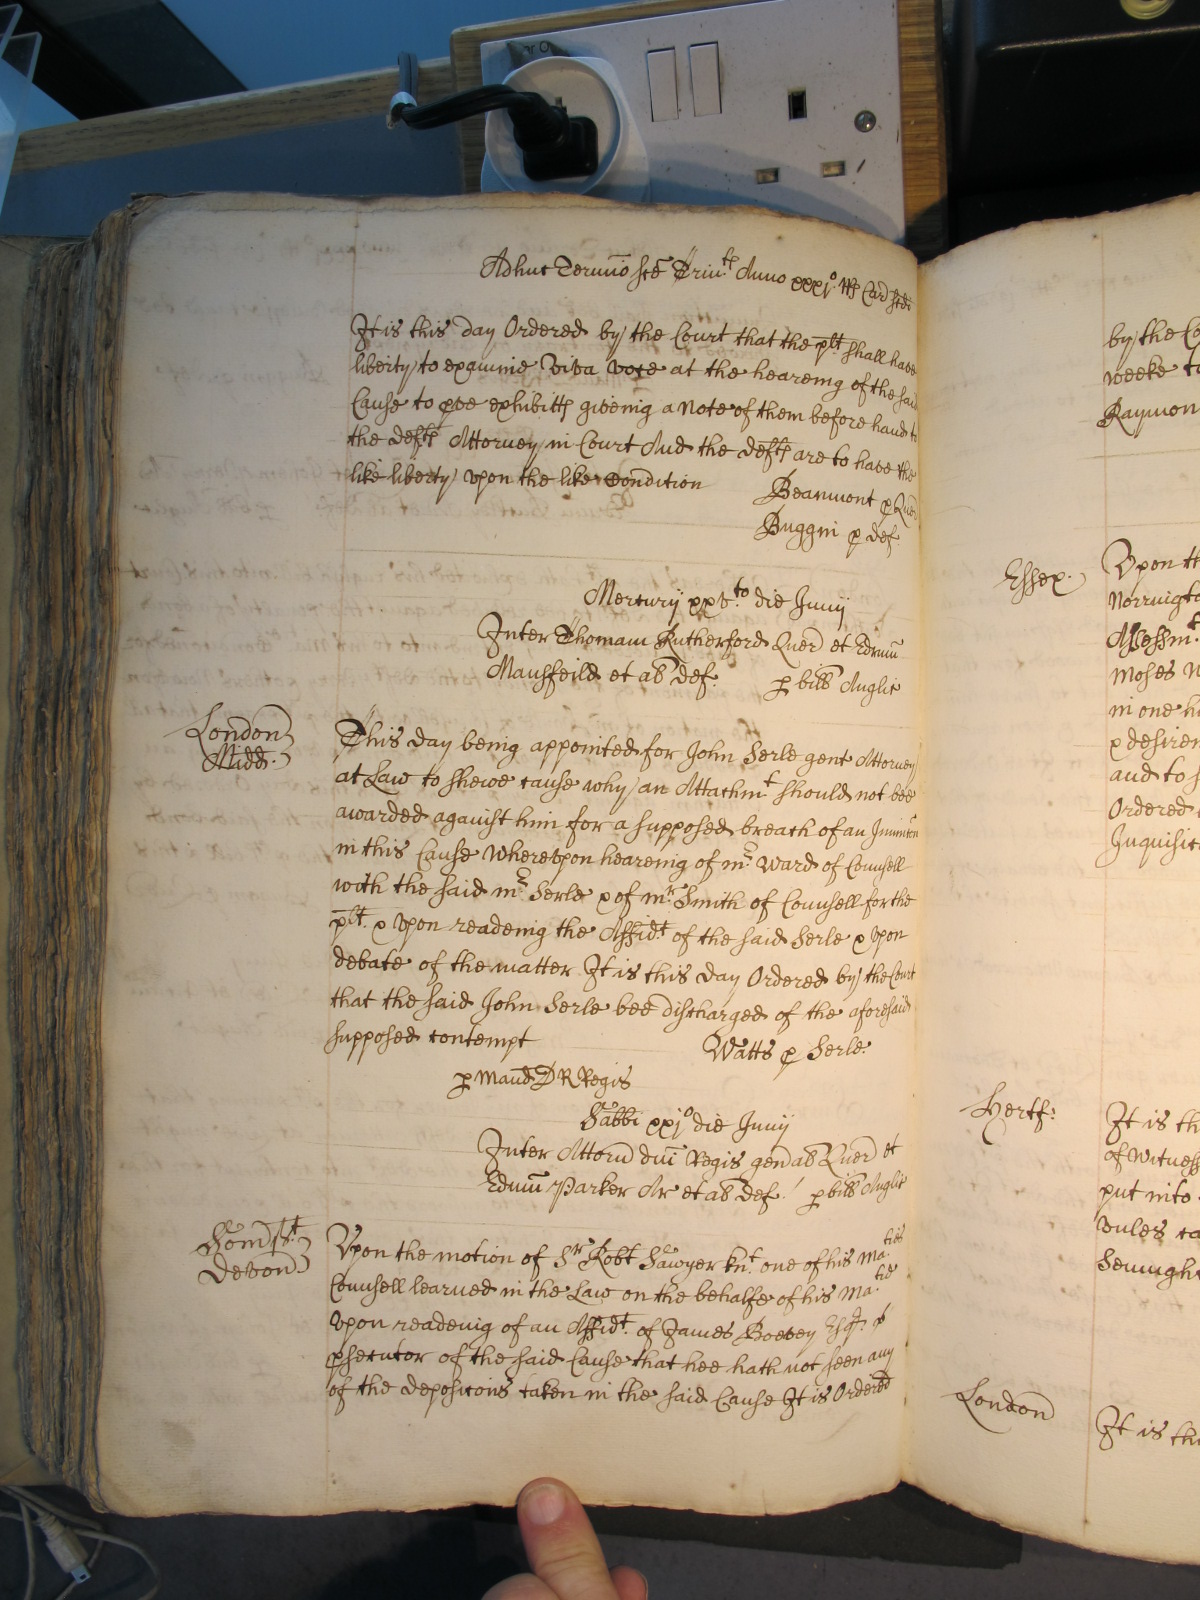 Adhuc Termio Sce Trin^tis Anno xxxj^o RRs Car sedi
It is this day Ordered by the Court that the plt shall have
liberty to examine Viva Voce at the heareing of the said
Cause to pve exhibitts giveing a Note of them before hand to
the defts Attorney in Court And the defts are to have the
like liberty upon the like Condition Beaumont p Quer
Buggin p def
Mercurij xxv^to die Junij
Inter Thomam Rutherford Quer et Edmu
Mansfeild et ab def. p bill Anglie
London
Midd.
This day being appointed for John Serle gent Attorney
at Law to shewe cause why an Attachm^t should not bee
awarded against him for a supposed breach of an Iniuncon
in this Cause Whereupon heareing of m^r Ward of Counsell
with the said m^r Serle & of m^r Smith of Counsell for the
plt. & Upon readeing the Affid^t of the said Serle & Upon
debate of the matter It is this day Ordered by the Court
that the said John Serle bee discharged of the aforesaid
supposed contempt Watts p Serle
p Mand D R Regis
Sabbi xxj^o die Junij
Inter Attorn dni Regis gen ab Quer et
Edmu Parker Ar et ab def. p bill Anglie
Somsett
Devon
Upon the motion of S^r Robt Sawyer kn^t one of his Ma^ties
Counsell learned in the Law on the behalfe of his Ma^tie
Upon readeing of an Affid^t of James Boevey Esq^r p
psecutor of the said Cause that hee hath not seen any
of the depositons taken in the said Cause It is Ordered
by the Co
weeke to
Raymon
Essex
Upon th
Norringto
Assessm^t
Moses
in one
& desiren
and to
Ordered
Inquisit
Hertf:
It is th
of Witness
put into
Rules
London
It is thi